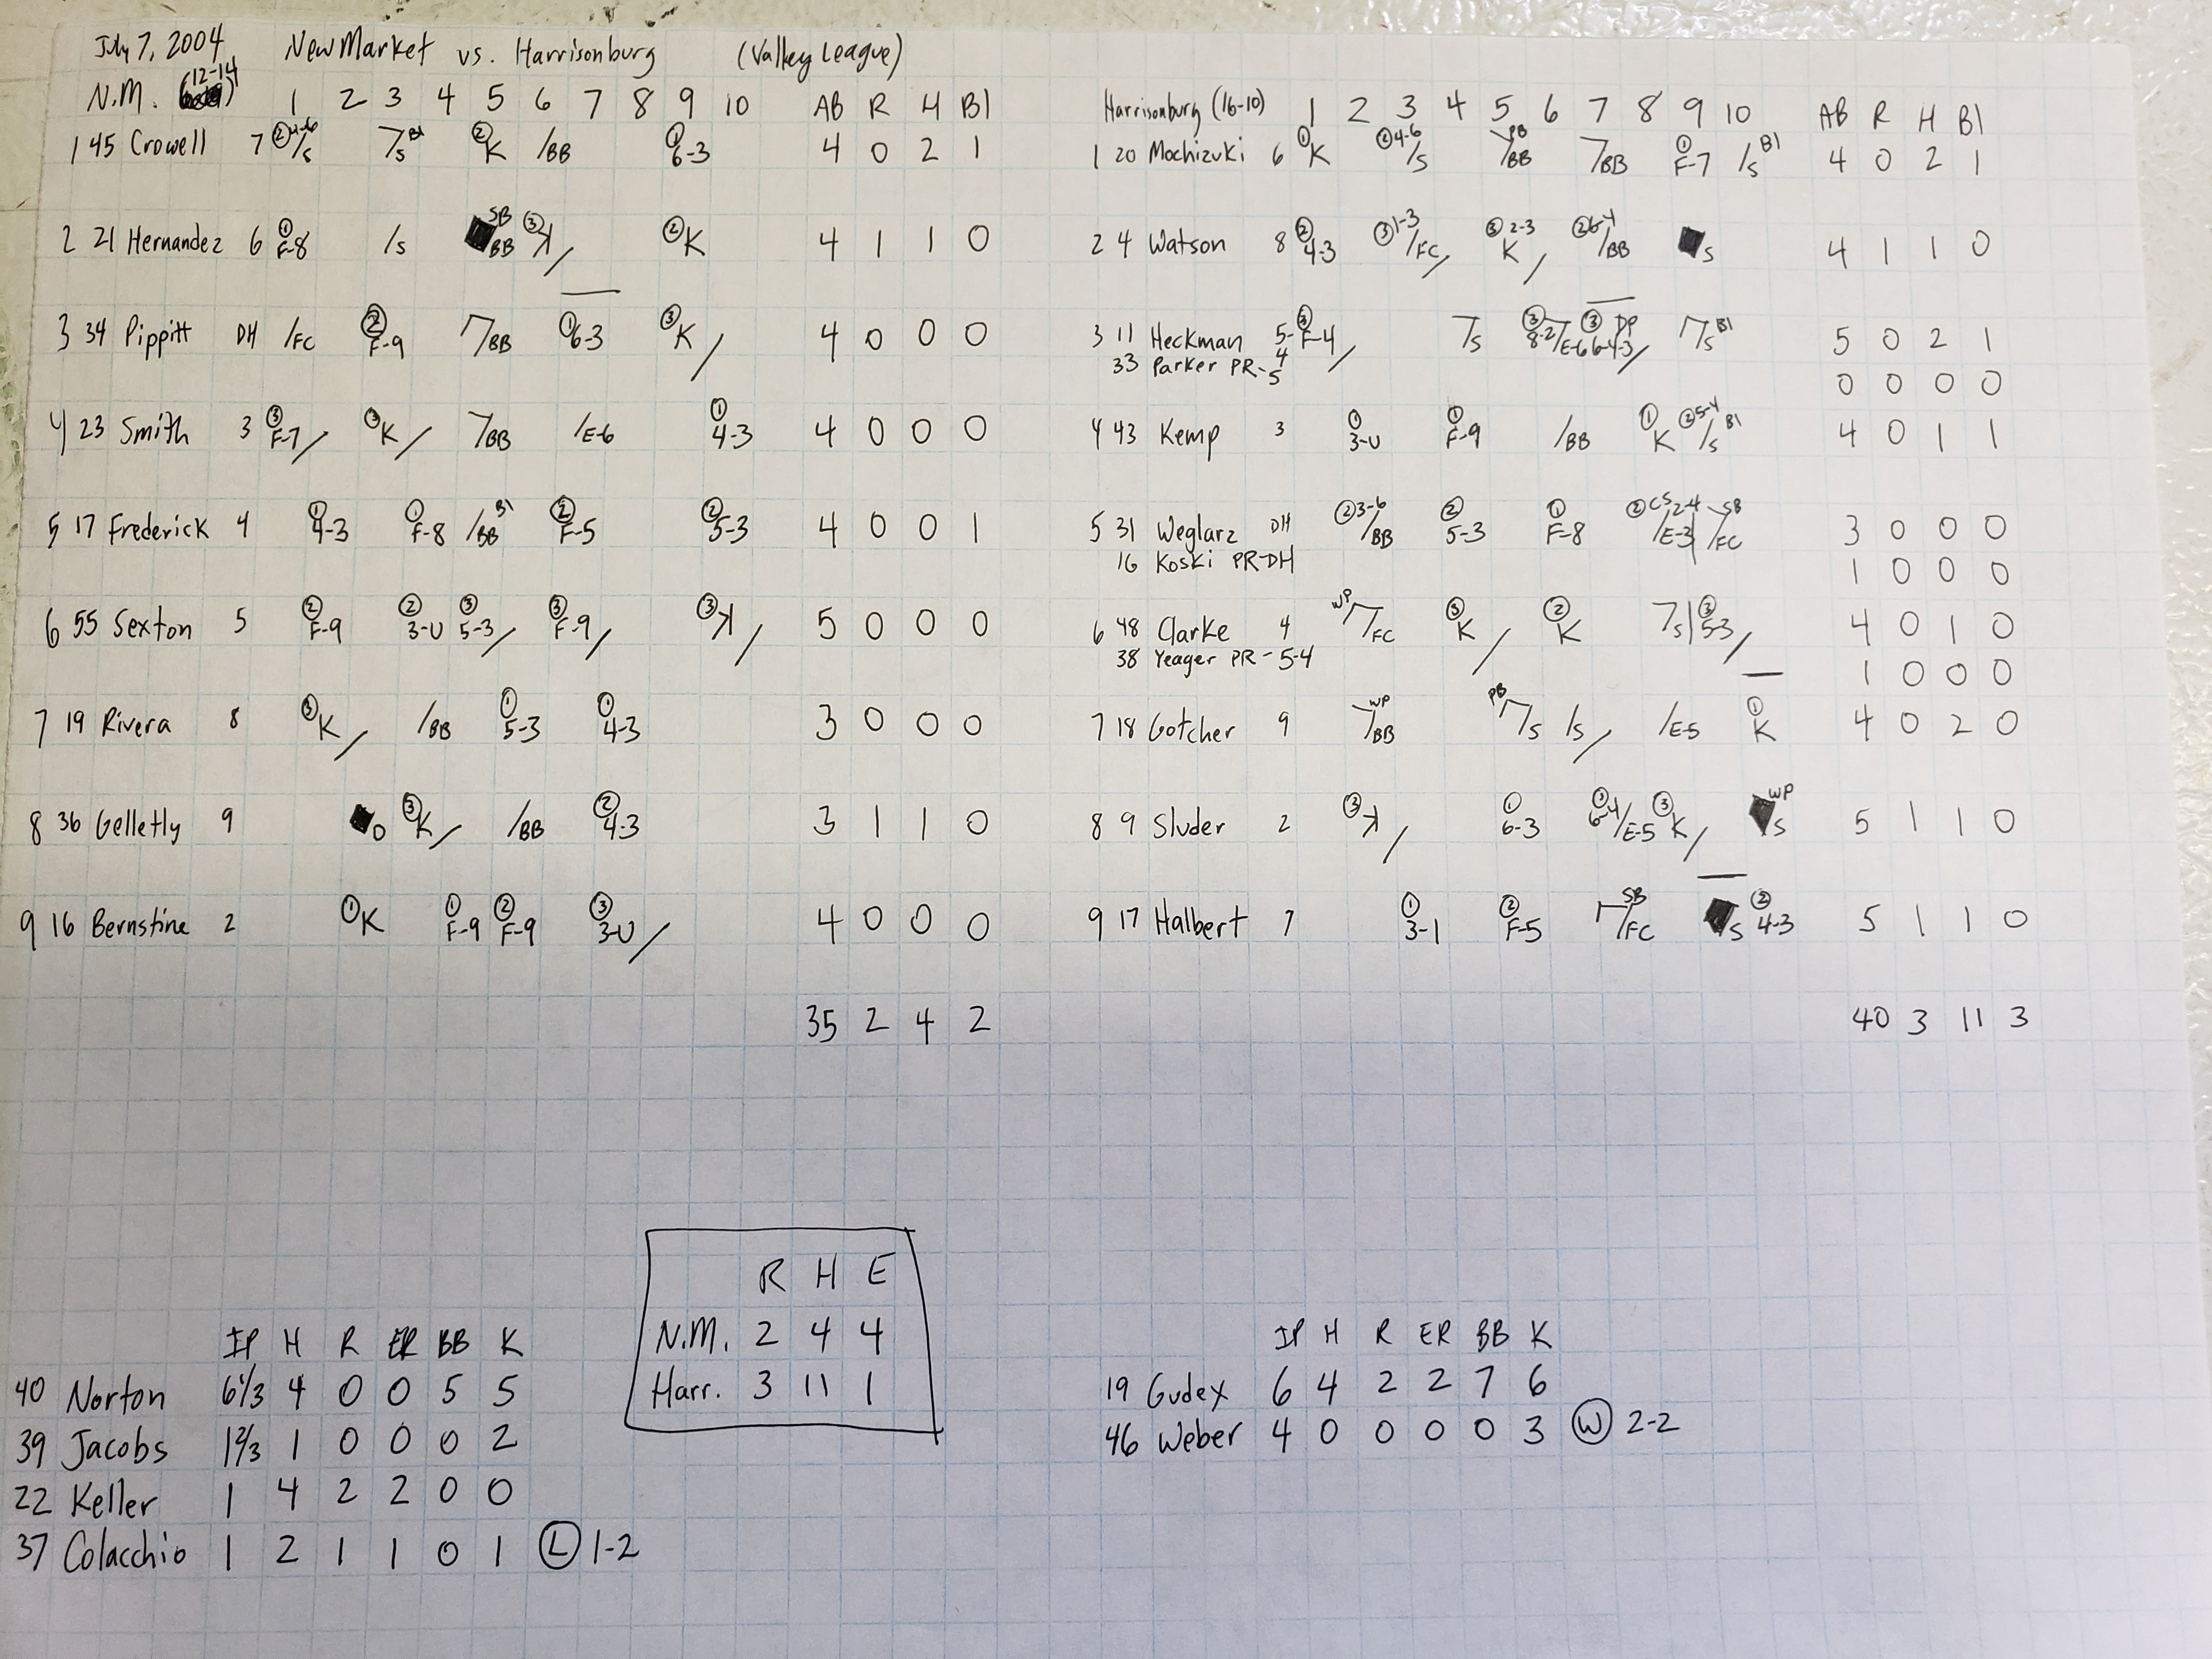 July 7, 2004 New Market vs. Harrisonburg (Valley League)
N.M. (12-14) 1 2 3 4 5 6 7 8 9 10 AB R H BI
1 45 Crowell 7 ②4-6 /S 7/S BI ②K /BB ①6-3 4 0 2 1
2 21 Hernandez 6 ①F-8 /S SB BB ③ꓘ/ ②K 4 1 1 0
3 34 Pippitt DH /FC ②F-9 /BB ①6-3 ③K/ 4 0 0 0
4 23 Smith 3 ③F-7/ ③K/ /BB /E-6 ①4-3 4 0 0 0
5 17 Frederick 4 ①4-3 ①F-8 /BB BI ②F-5 ②5-3 4 0 0 1
6 55 Sexton 5 ②F-9 ②3-U ③5-3/ ③F-9/ ③ꓘ/ 5 0 0 0
7 19 Rivera 8 ③K/ /BB ①5-3 ①4-3 3 0 0 0
8 36 Gelletly 9 D ③K/ /BB ②4-3 3 1 1 0
9 16 Bernstine 2 ①K ①F-9 ②F-9 ③3-U/ 4 0 0 0
35 2 4 2
Harrisonburg (16-10) 1 2 3 4 5 6 7 8 9 10 AB R H BI
1 20 Mochizuki 6 ①K ②4-6 /S PB /BB /BB ①F-7 /S BI 4 0 2 1
2 4 Watson 8 ②4-3 ③1-3 /FC/ ③2-3 K/ ②6-4 /BB S 4 1 1 0
3 11 Heckman 5-4 ③F-4/ /S ③8-2 /E-6 ③DP 6-4-3/ /S BI 5 0 2 1
33 Parker PR-5 0 0 0 0
4 43 Kemp 3 ①3-U ①F-9 /BB ①K ②5-4 /S BI 4 0 1 1
5 31 Weglarz DH ②3-6 /BB ②5-3 ①F-8 ②CS 2-4 /E-3| SB /FC 3 0 0 0
16 Koski PR-DH 1 0 0 0
6 48 Clarke 4 WP /FC ③K/ ②K /S|③5-3/ 4 0 1 0
38 Yeager PR-5-4 1 0 0 0
7 18 Gotcher 9 WP /BB PB /S /S/ /E-5 ①K 4 0 2 0
8 9 Sluder 2 ③ꓘ/ ①6-3 ③6-4 /E-5 ③K/ WP S 5 1 1 0
9 17 Halbert 7 ①3-1 ②F-5 SB /FC S ②4-3 5 1 1 0
40 3 11 3
R H E
N.M. 2 4 4
Harr. 3 11 1
IP H R ER BB K
40 Norton 6 1/3 4 0 0 5 5
39 Jacobs 1 2/3 1 0 0 0 2
22 Keller 1 4 2 2 0 0
37 Colacchio 1 2 1 1 0 1 Ⓛ 1-2
IP H R ER BB K
19 Gudex 6 4 2 2 7 6
46 Weber 4 0 0 0 0 3 Ⓦ 2-2